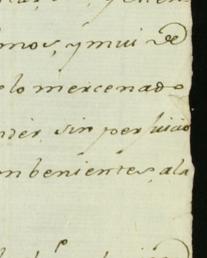 mos, y mui de
lo mercenado
der, sin perjuicio
nbenientes, ala